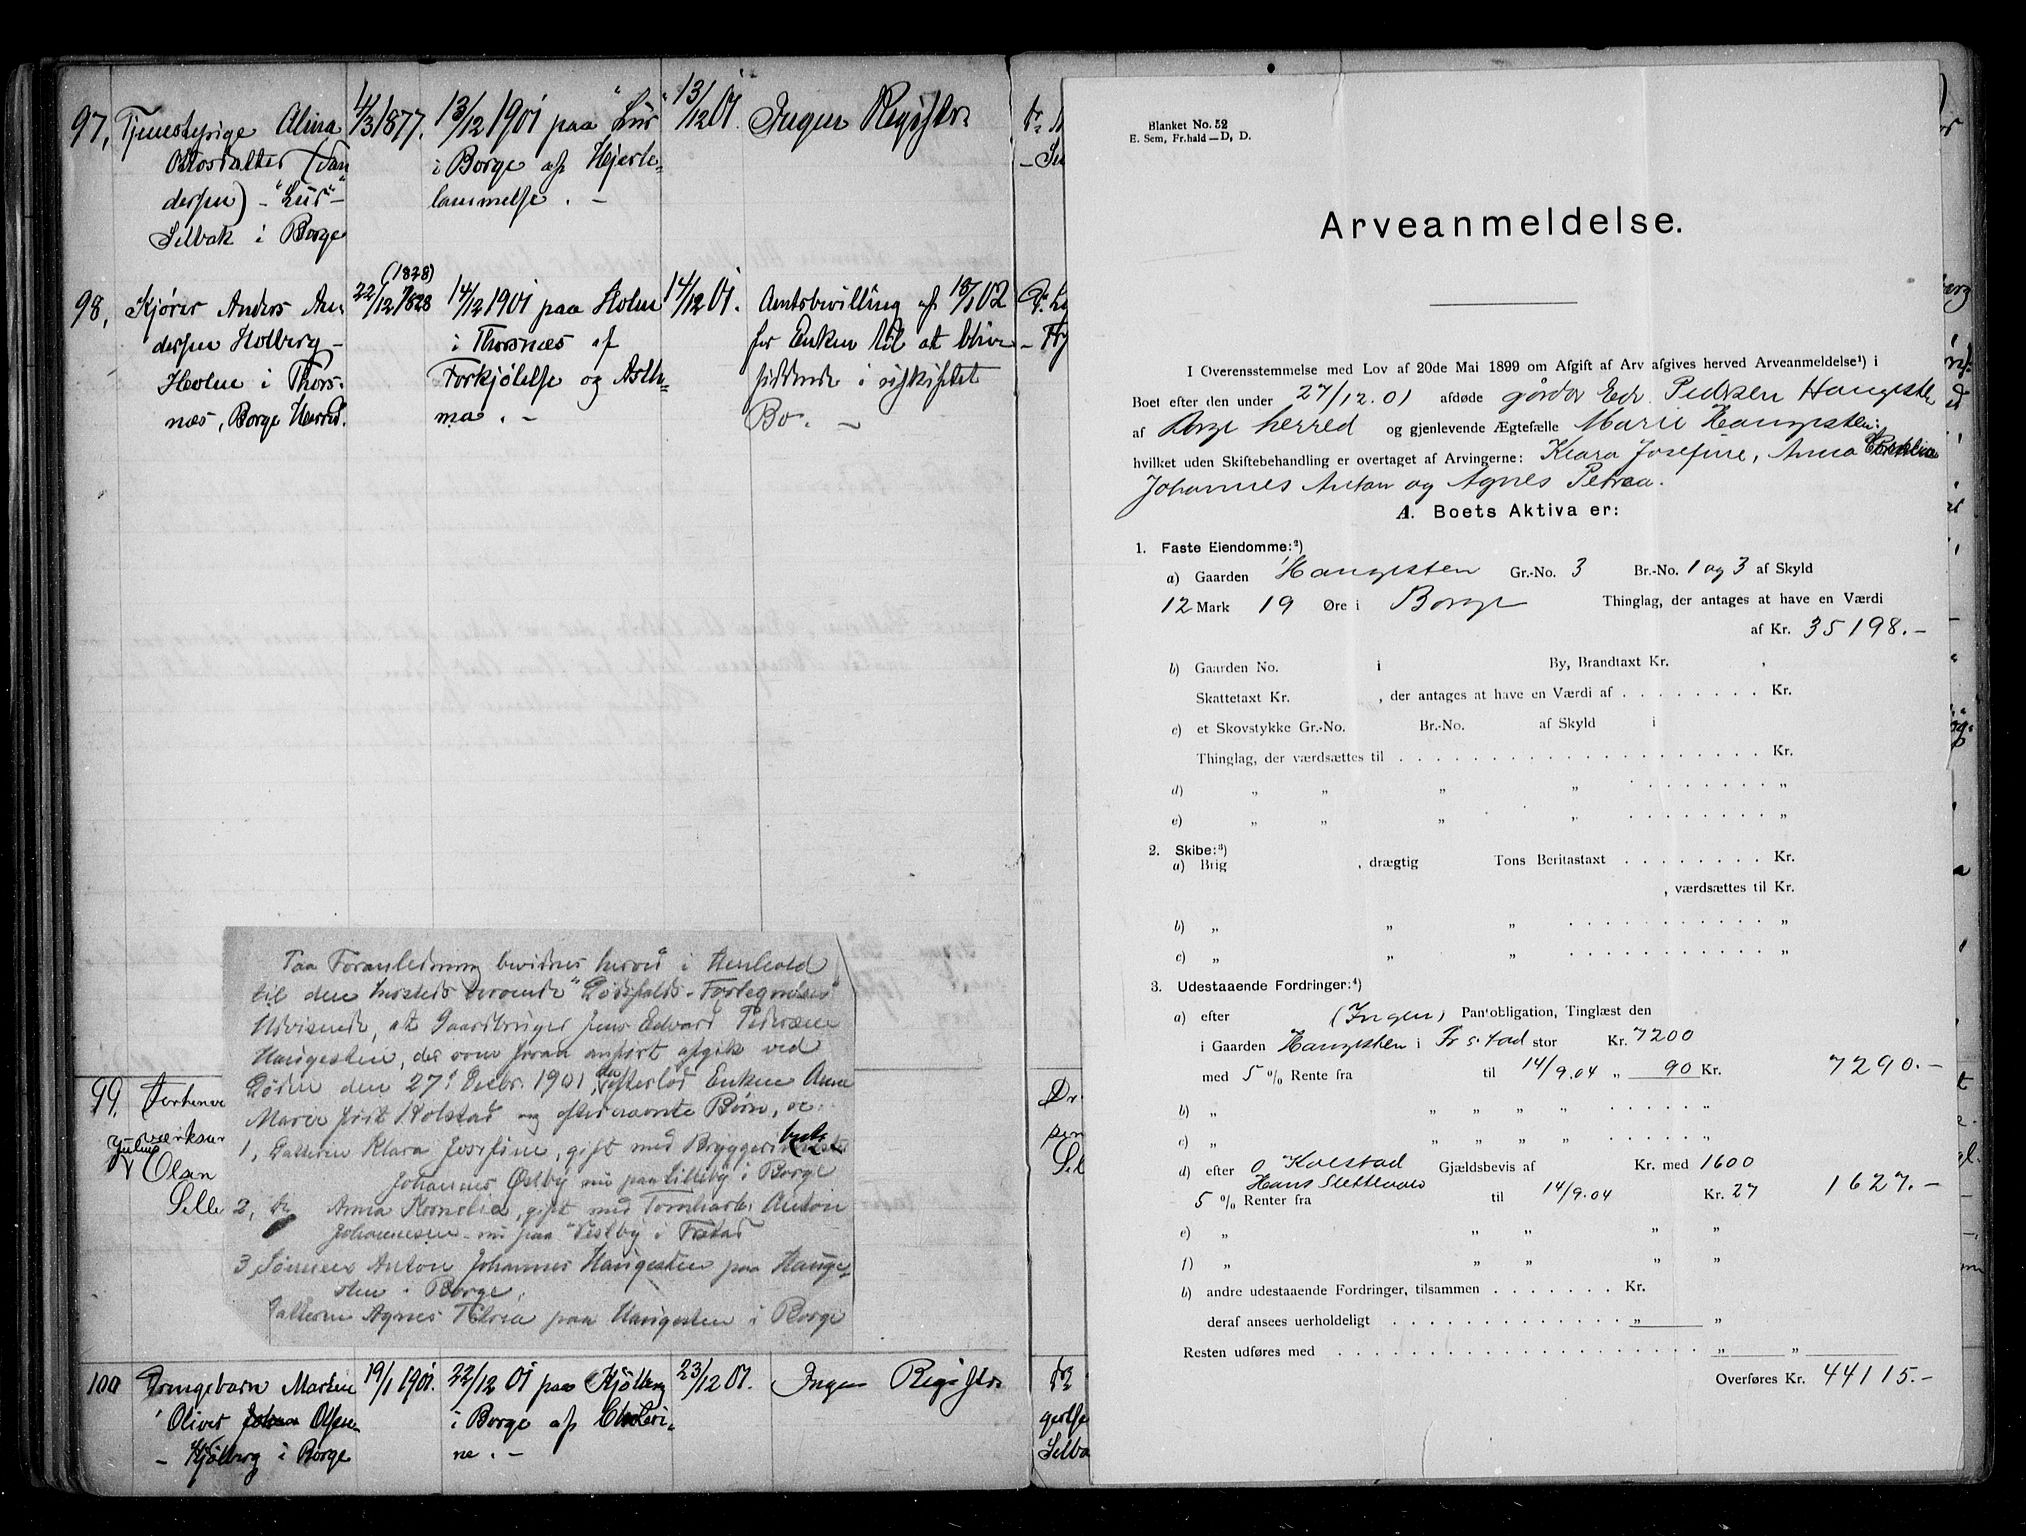 97, Tjenestepige Alina
4/3 1877.
13/12 1901 paa "Lür"
13/12 01.
Ingen Registr.
i Borge af Hjerte-
dersen) - "Lür" -
lammelse. -
Selbak i Borge
98, Kjører Anders An-
(1828)
22/12 1828
14/12 1901 paa Holm
14/12 01.
Amtsbevilling af 18/1 02
dersen Holberg -
i Thorsnæs af
for Enken til at blive
Holm i Thors-
Forkjølelse og Asth-
siddende i uskiftet
næs, Borge Herred.
ma. -
Bo. -
Paa Foranledning bevidnes herved i Henhold
til den hersteds beroende "Dødsfalds-Fortegnelse"
Udvisende, at Gaardbruger Jens Edvard Pedersen
Haugesten, der som foran anført afgik ved
Døden den 27' Decbr. 1901 efterlod Enken Anne
Marie født Kolstad og efternævnte Børn, ..
1, Datteren Klara Josefine, gift med Bryggeri
Johannes Østby nu paa Lilleby i Borge
2, Do Anna Kornelia, gift med Tømharb. Anton
Johannesen nu paa Vestby i Frstad
3, Sønnen Anton Johannes Haugesten paa Hauge-
sten i Borge,
Datteren Agnes Petrea paa Haugesten i Borge
99,
Olsen
Selle
100 Drengebarn Marten
19/1 1901.
22/12 01 paa Kjølberg
23/12 01.
Ingen Registr.
Oliver Johan Olsen
i Borge af Choleri-
- Kjølberg i Borge
ne. -
Blanket No. 52
E. Sem, Fr.hald — D, D.
Arveanmeldelse.
I Overensstemmelse med Lov af 20de Mai 1899 om Afgift af Arv afgives herved Arveanmeldelse¹) i
Boet efter den under 27/12.01 afdøde gårdbr Edv. Pedersen Haugesten
af Borge herred og gjenlevende Ægtefælle Marie Haugesten
hvilket uden Skiftebehandling er overtaget af Arvingerne: Klara Josefine, Anna Cornelia
Johannes Anton og Agnes Petrea.
A. Boets Aktiva er:
1. Faste Eiendomme:²)
a) Gaarden Haugesten Gr.-No. 3 Br.-No. 1 og 3 af Skyld
12 Mark 19 Øre i Borge Thinglag, der antages at have en Værdi
af Kr. 35198.-
b) Gaarden No. i By, Brandtaxt Kr. ,
Skattetaxt Kr. , der antages at have en Værdi af . . . . . . . . Kr.
c) et Skovstykke Gr.-No. Br.-No. af Skyld i
Thinglag, der værdsættes til . . . . . . . . . . . . . . . . . . . Kr.
d) „ „ „ „ . . . . . . . . „
e) „ „ „ „ . . . . . . . . „
2. Skibe:³)
a) Brig , drægtig Tons Beritastaxt . . . . . . . . Kr.
, værdsættes til Kr.
b) „ „ „ . . . . . . . . . . . „
c) „ „ „ . . . . . . . . . . . „
3. Udestaaende Fordringer:⁴)
a) efter (Ingen) Pan'obligation, Tinglæst den
i Gaarden Haugesten i Fr.stad stor Kr. 7200
med 5 % Rente fra til 14/9.04 „ 90 Kr. 7290.-
b) „ „ „ „ „ . . . . . . „
c) „ „ „ „ „ . . . . . . „
d) efter O Kolstad Gjældsbevis af Kr. med 1600
Hans Slettevold
5 % Renter fra til 14/9.04 Kr. 27 1627.-
e) „ „ „ „ „
f) „ „ „ „ „
b) andre udestaaende Fordringer, tilsammen . . . . . . . Kr.
deraf ansees uerholdeligt . . . . . . . . . . . . . . „ „
Resten udføres med . . . . . . . . . . . . . . . . . . „ „
Overføres Kr. 44115.-